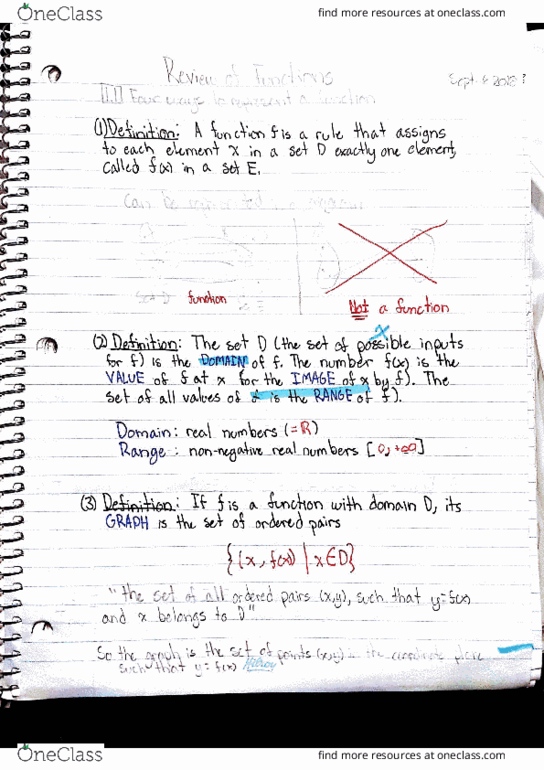 OneClass
find more resources at oneclass.com
Review of Functions
Four ways to represent a function
(1) Definition: A function f is a rule that assigns
to each element x in a set D exactly one element,
called f(x) in a set E.
Can be represented
function
Not a function
x
(2) Definition: The set D (the set of possible inputs
for f) is the DOMAIN of f. The number f(x) is the
VALUE of f at x for the IMAGE of x by f). The
set of all values of is the RANGE of f).
Domain: real numbers (=ℝ)
Range: non-negative real numbers [0, +∞]
(3) Definition: If f is a function with domain D, its
GRAPH is the set of ordered pairs
{(x, f(x) | x∈D}
"the set of all ordered pairs (x,y), such that y=f(x)
and x belongs to D"
So the graph is the set of points (x,y) in the coordinate plane
such that y=f(x) Hilroy
OneClass
find more resources at oneclass.com